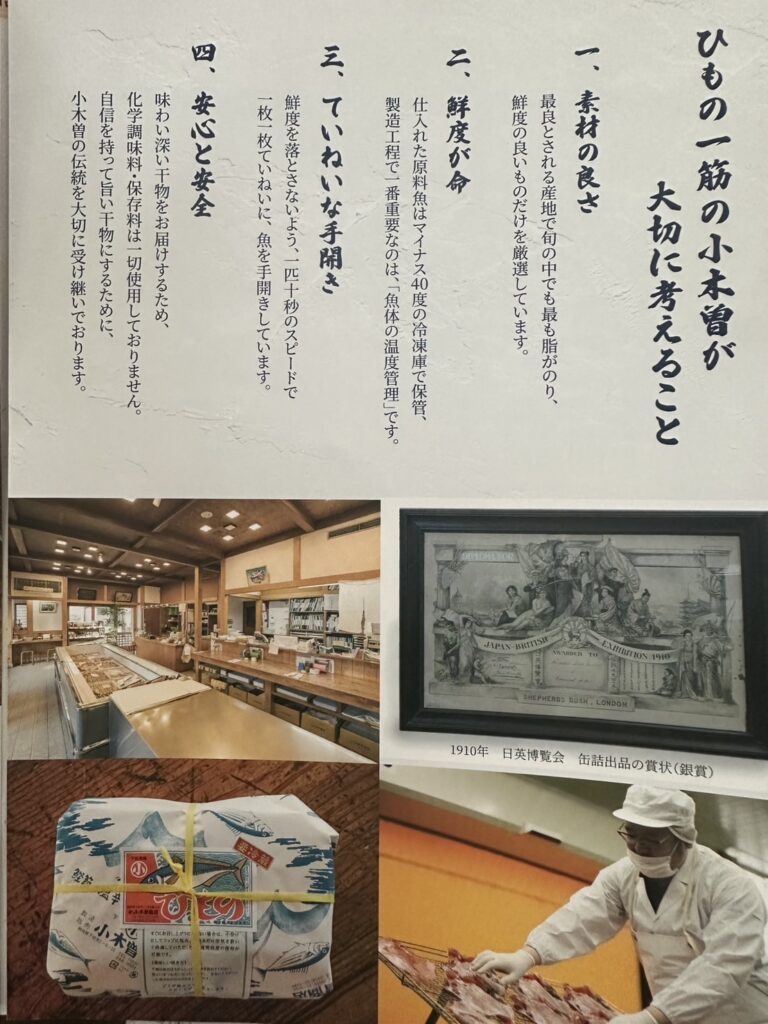 ひもの一筋の小木曽が
大切に考えること
一、素材の良さ
最良とされる産地で旬の中でも最も脂がのり、
鮮度の良いものだけを厳選しています。
二、鮮度が命
仕入れた原料魚はマイナス40度の冷凍庫で保管、
製造工程で一番重要なのは、「魚体の温度管理」です。
三、ていねいな手開き
鮮度を落とさないよう、一匹十秒のスピードで
一枚一枚ていねいに、魚を手開きしています。
四、安心と安全
味わい深い干物をお届けするため、
化学調味料・保存料は一切使用しておりません。
自信を持って旨い干物にするために、
小木曽の伝統を大切に受け継いでおります。
JAPAN-BRITISH EXHIBITION 1910
AWARDED TO
SHEPHERDS BUSH, LONDON
1910年 日英博覧会 缶詰出品の賞状(銀賞)
小
ひもの
小木曽